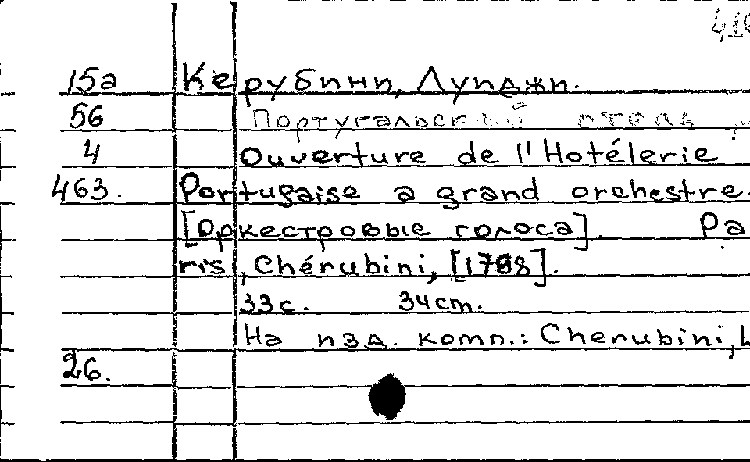 15а Керубини, Луиджи.
56 Португальский отель
4 Ouverture de l'Hotélerie
463. Portugaise a grand orchestre.
[Оркестровые голоса]. Pa
ris, Chérubini, [1798].
33с. 34cm.
На изд. комп.: Cherubini, L
26.